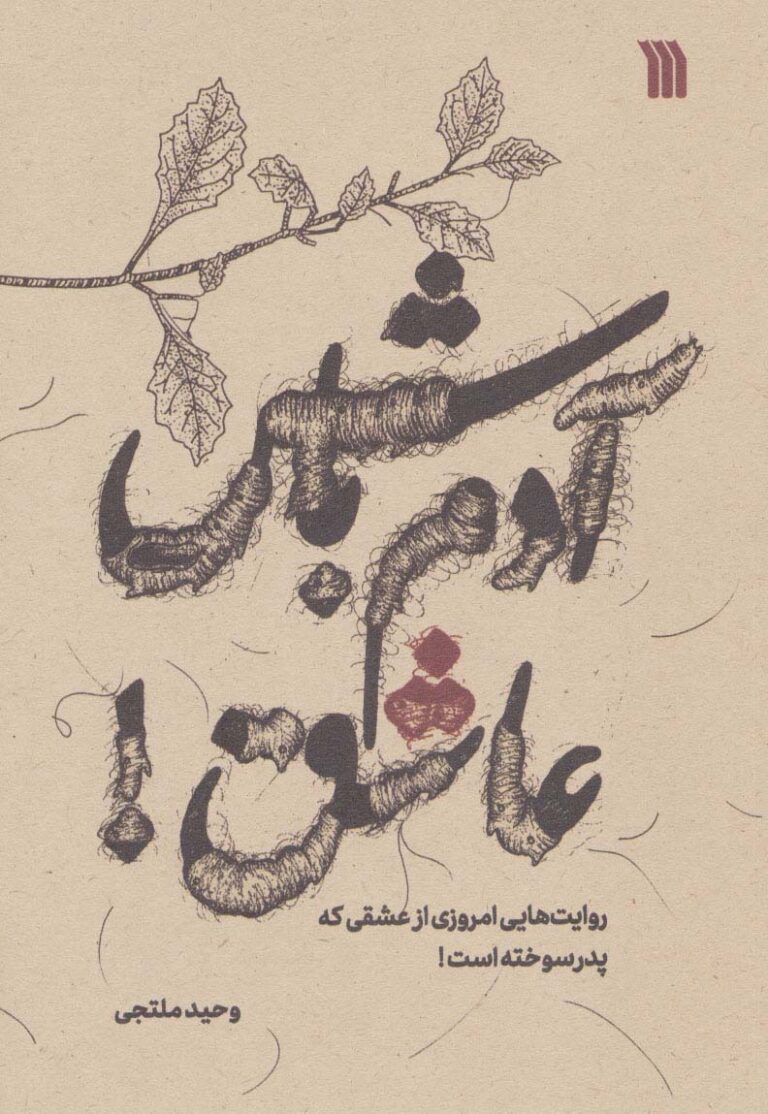 آدم باش
عاشق!
روایت‌هایی امروزی از عشقی که
پدرسوخته است!
وحید ملتجی